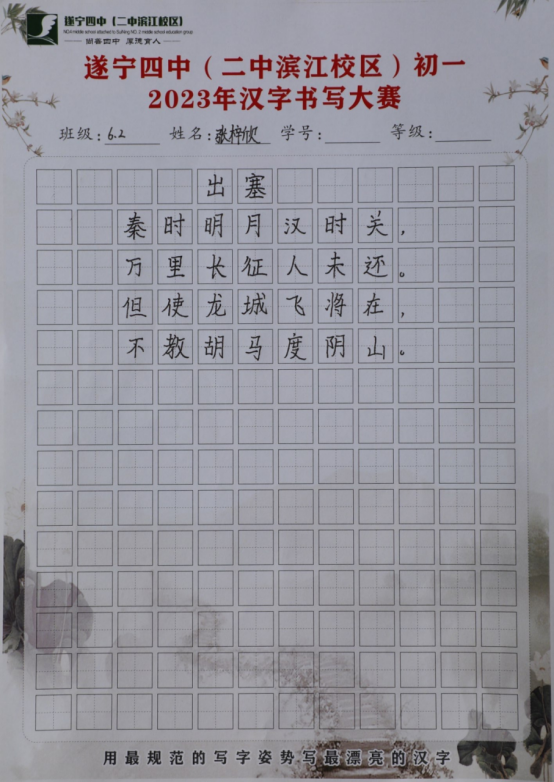 遂宁四中（二中滨江校区）
尚善四中 厚德育人
遂宁四中（二中滨江校区）初一
2023年汉字书写大赛
班级：6.2 姓名：张梓欣 学号： 等级：
出塞
秦时明月汉时关，
万里长征人未还。
但使龙城飞将在，
不教胡马度阴山。
用最规范的写字姿势写最漂亮的汉字